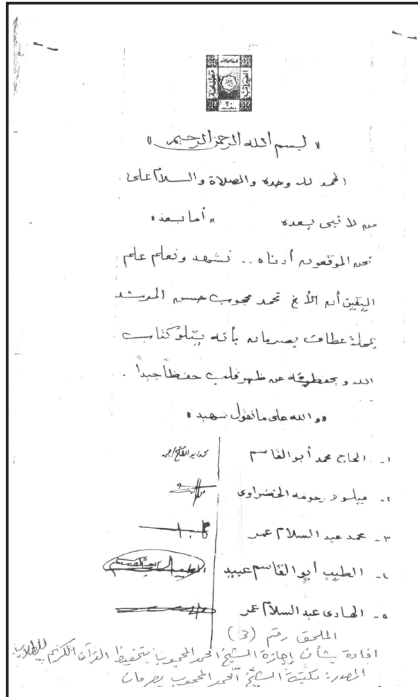 « بسم الله الرحمن الرحيم »
الحمد لله وحده والصلاة والسلام على
من لا نبي بعده « أما بعد »
نحن الموقعون أدناه .. نشهد ونعلم علم
اليقين أن الأخ محمد محجوب حسن المرشد
بمحلة عطاف بصرمان بأنه يتلو كتاب
الله ويحفظه عن ظهر قلب حفظاً جيداً .
« والله على ما نقول شهيد »
١- الحاج محمد أبو القاسم
٢- ميلود رحومه الخضراوى
٣- محمد عبد السلام عمر
٤- الطيب أبو القاسم عبيد
٥- الهادى عبد السلام عمر
الملحق رقم (3)
افادة بشأن إجازة الشيخ امحمد المحجوب بتحفيظ القرآن الكريم للطلاب
المصدر: مكتبة الشيخ امحمد المحجوب بصرمان